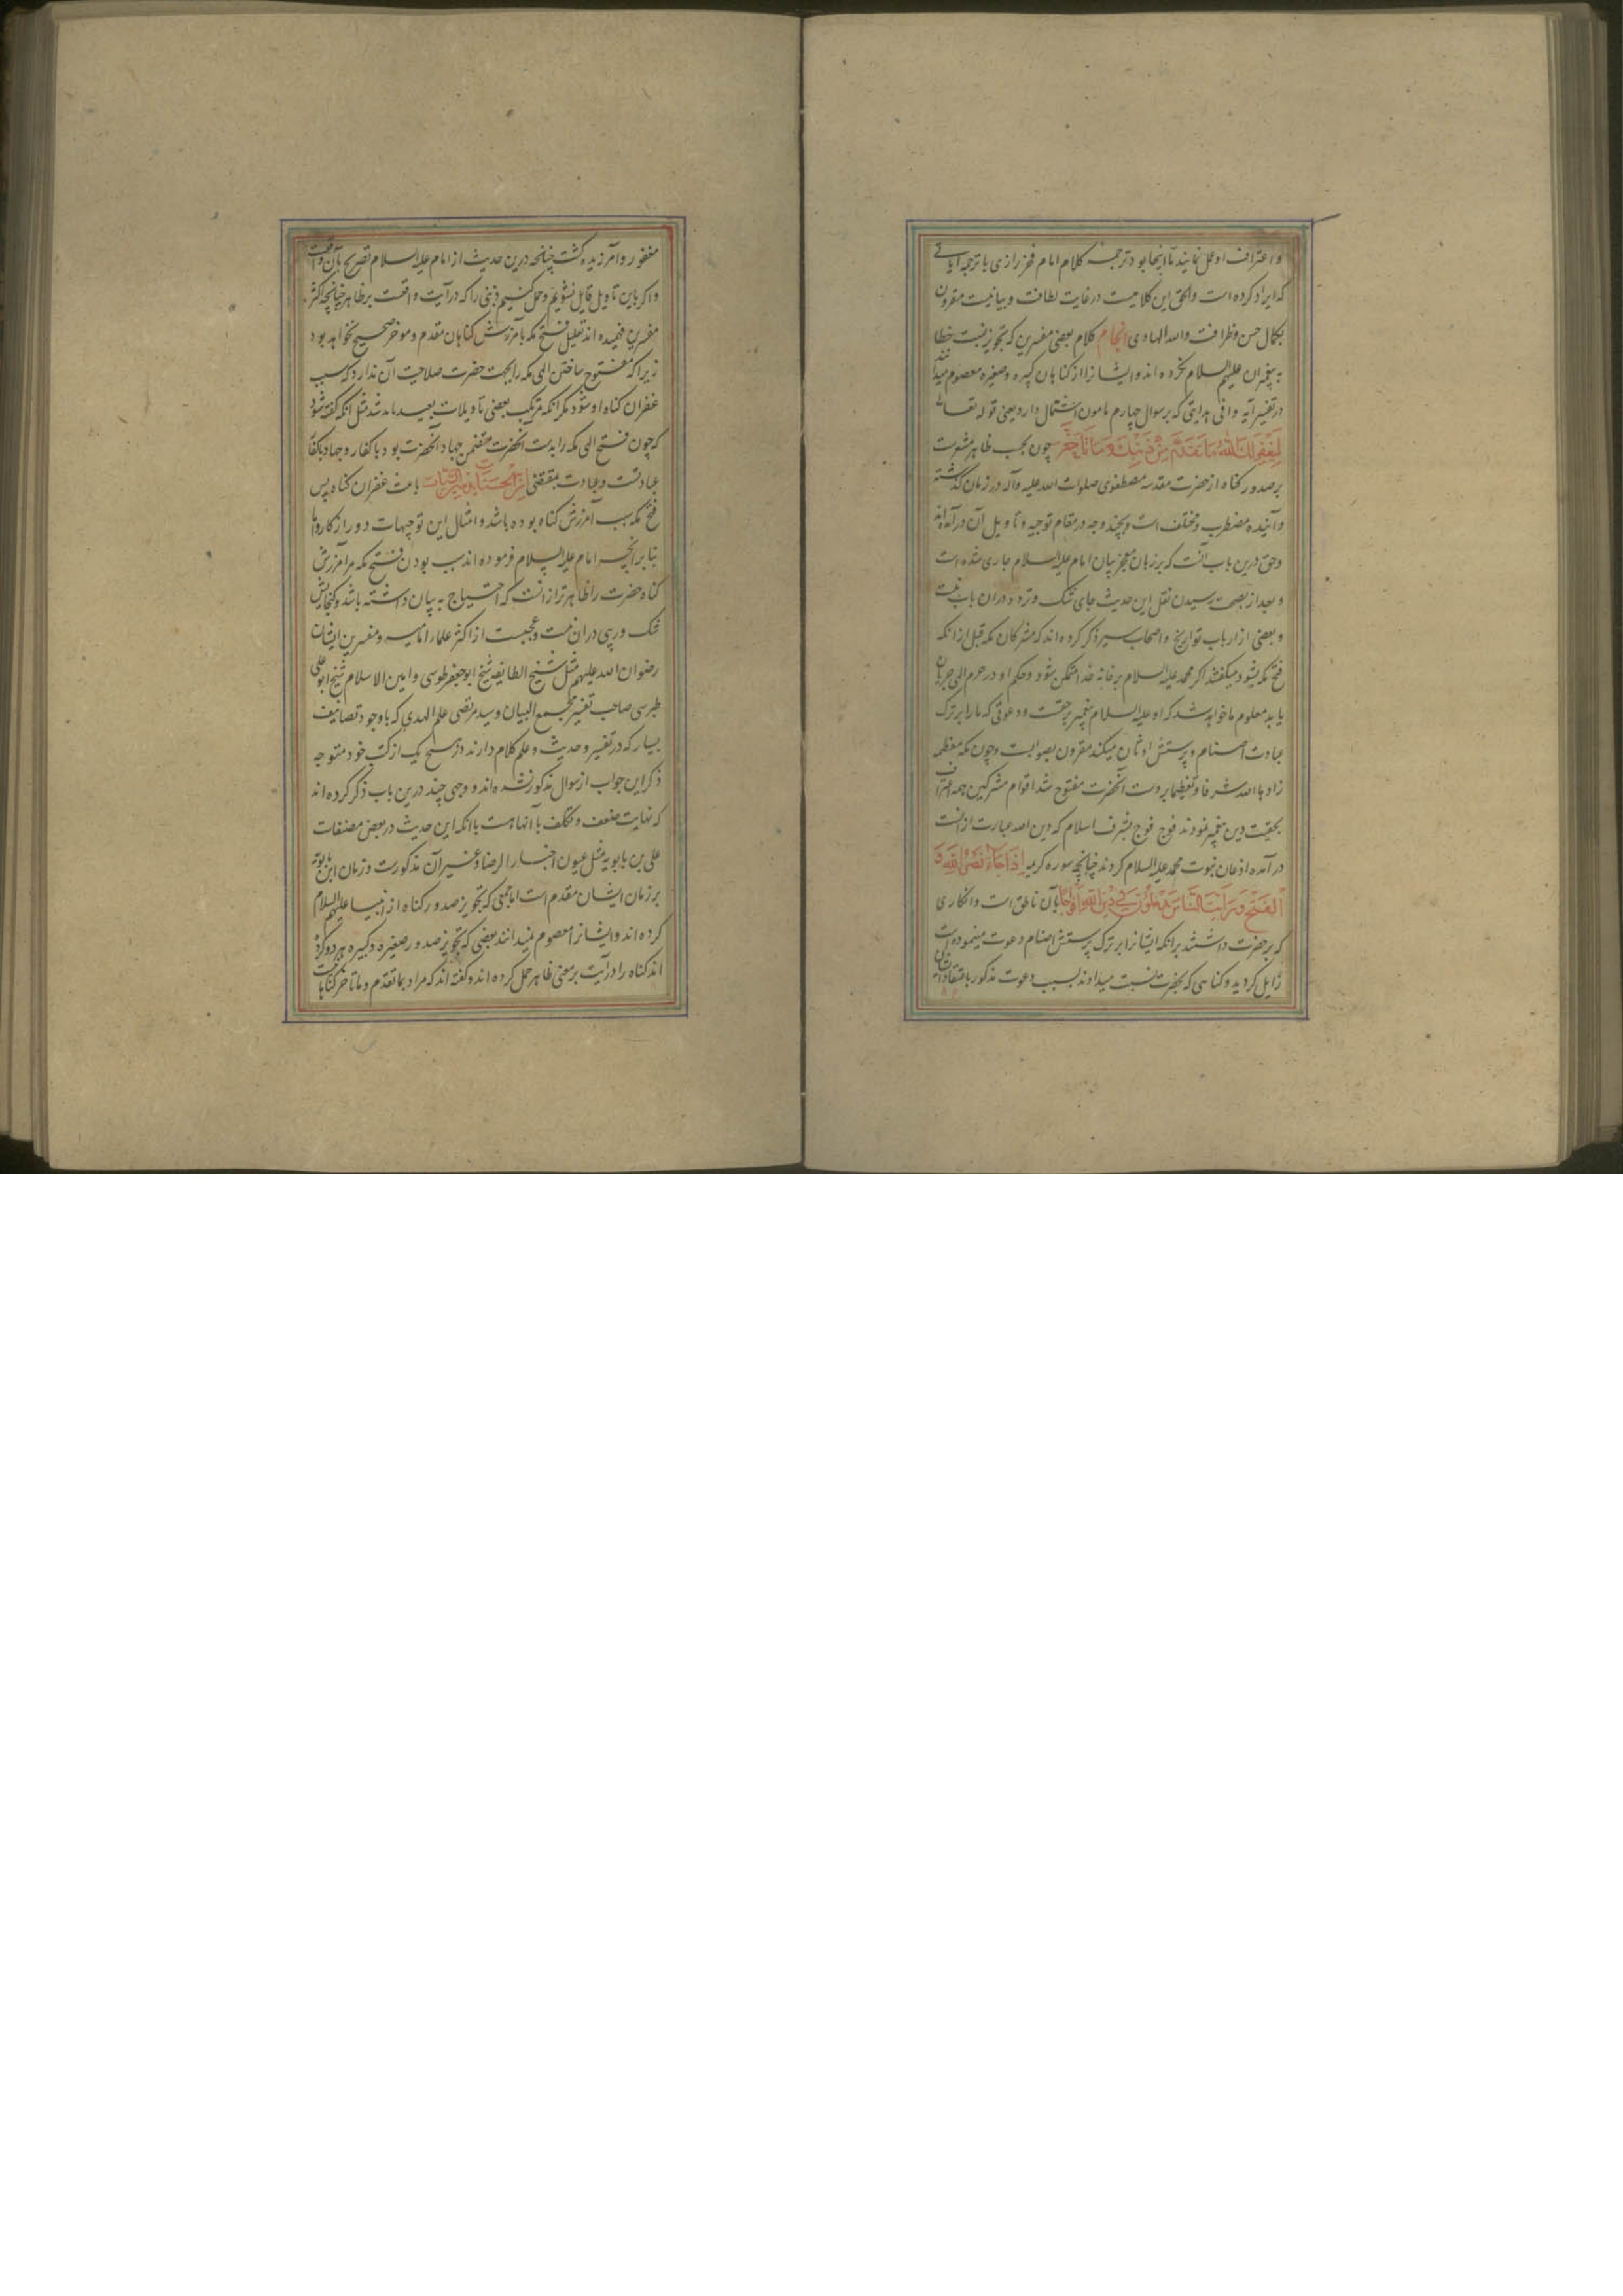 و اعتراف او عمل نمایند تا اینجا بود ترجمه کلام امام فخر رازی با ترجمه آیاتی
که ایراد کرده است والحق این کلامیست در غایت لطافت و بیانیست مقرون
بکمال حسن و ظرافت والله الهادی انجام کلام بعضی مفسرین که تجویز نسبت خطا
به پیغمبران علیهم السلام نکرده اند و ایشانرا از کناهان کبیره و صغیره معصوم میدانند
در تفسیر آیه وافی هدایتی که بر سوال چهارم مامون اشتمال دارد یعنی قوله تعالی
لِيَغْفِرَ لَكَ اللهُ مَا تَقَدَّمَ مِنْ ذَنْبِكَ وَمَا تَأَخَّرَ چون بحسب ظاهر مشعرست
بر صدور کناه از حضرت مقدسه مصطفوی صلوات الله علیه وآله در زمان کذشته
و آینده مضطرب و مختلف است و بچند وجه در مقام توجیه و تاویل آن درآمده اند
و حق درین باب آنست که بر زبان معجز بیان امام علیه السلام جاری شده است
و بعد از بصحت رسیدن نقل این حدیث جای شک و تردد در آن باب نیست
و بعضی از ارباب تواریخ و اصحاب سیر ذکر کرده اند که مشرکان مکه قبل از انکه
فتح مکه بشود میکفتند اکر محمد علیه السلام بر خانه خدا متمکن شود و حکم او در حرم الهی جریان
یابد معلوم ما خواهد شد که او علیه السلام پیغمبر برحقست و دعوتی که ما را بر ترک
عبادت اصنام و پرستش اوثان میکند مقرون بصوابست و چون مکه معظمه
زادها الله شرفا و تعظیما بر دست آنحضرت مفتوح شد اقوام مشرکین همه اعتراف
بحقیت دین پیغمبر نمودند فوج فوج بشرف اسلام که دین الله عبارت از انست
درآمده اذعان نبوت محمد علیه السلام کردند چنانچه سوره کریمه إِذَا جَاءَ نَصْرُ اللهِ وَ
الْفَتْحُ وَرَأَيْتَ النَّاسَ يَدْخُلُونَ فِي دِينِ اللهِ أَفْوَاجًا بآن ناطق است و انکاری
که بر حضرت داشتند بر انکه ایشانرا بر ترک پرستش اصنام دعوت مینموده است
زایل کردید و کناهی که بحضرت نسبت میدادند بسبب دعوت مذکور باعتقاد ایشان
مغفور و آمرزیده کشت چنانچه درین حدیث از امام علیه السلام تصریح بآن واقعست
و اکر باین تاویل قایل نشویم و حمل کنیم ذنبی را که در آیت واقعست بر ظاهر چنانچه اکثر
مفسرین فهمیده اند تعلیل فتح مکه بآمرزش کناهان مقدم و موخر صحیح نخواهد بود
زیرا که مفتوح ساختن الهی مکه را بجهت حضرت صلاحیت آن ندارد که سبب
غفران کناه او شود مکر انکه مرتکب بعضی تاویلات بعیده باید شد مثل انکه کفته شود
که چون فتح الهی مکه را بدست آنحضرت متضمن جهاد آنحضرت بود با کفار و جهاد با کفار
عبادتست و عبادت بمقتضی إِنَّ الْحَسَنَاتِ يُذْهِبْنَ السَّيِّئَاتِ باعث غفران کناه پس
فتح مکه سبب آمرزش کناه بوده باشد و امثال این توجیهات دور از کار و اما
بنا بر آنچه امام علیه السلام فرموده اند سبب بودن فتح مکه مر آمرزش
کناه حضرت را ظاهرتر از انست که احتیاج به بیان داشته باشد و کنجایش
شک و ریبی در ان نیست و عجبست از اکثر علماء امامیه و مفسرین ایشان
رضوان الله علیهم مثل شیخ الطایفه شیخ ابو جعفر طوسی و امین الاسلام شیخ ابو علی
طبرسی صاحب تفسیر مجمع البیان و سید مرتضی علم الهدی که با وجود تصانیف
بسیار که در تفسیر و حدیث و علم کلام دارند در هیچ یک از کتب خود متوجه
ذکر این جواب از سوال مذکور نشده اند و وجهی چند درین باب ذکر کرده اند
که نهایت ضعف و تکلف با آنها هست با انکه این حدیث در بعض مصنفات
علی بن بابویه مثل عیون اخبار الرضا و غیر آن مذکورست و زمان ابن بابویه
بر زمان ایشان مقدم است اما جمعی که تجویز صدور کناه از انبیا علیهم السلام
کرده اند و ایشانرا معصوم نمیدانند بعضی که تجویز صدور صغیره و کبیره هر دو کرده
اند کناه را در آیت بر معنی ظاهر حمل کرده اند و کفته اند که مراد بما تقدم و ما تاخر کناهان